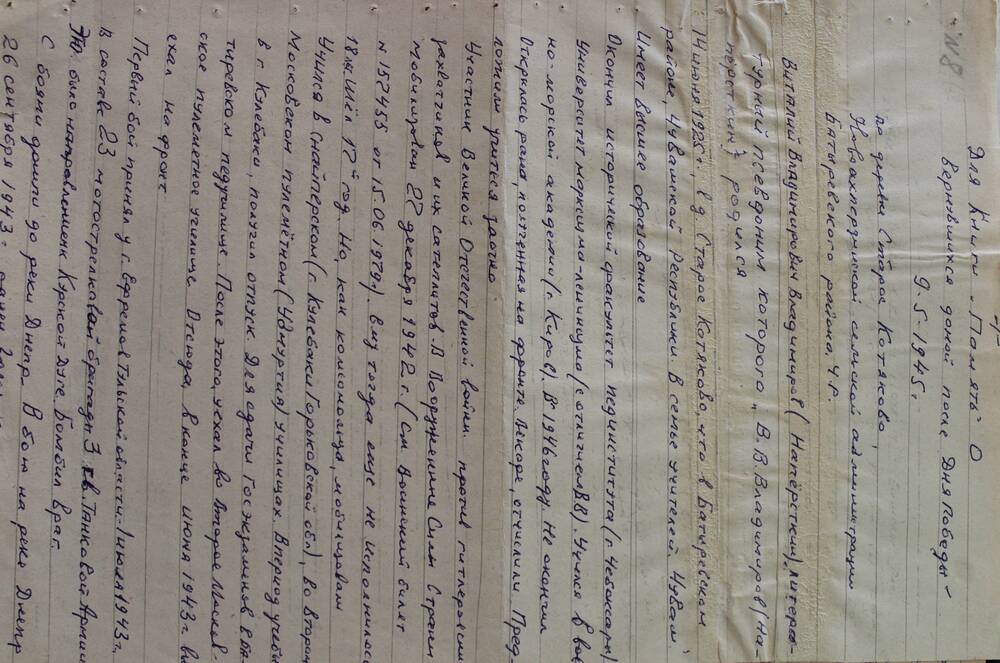 -1-
№8
Для Книги „Память" О
вернувшихся домой после Дня Победы
9-5-1945г
по деревне Старое Котяково,
Новоахпердинской сельской администрации
Батыревского района, Ч.Р.
Виталий Владимирович Владимиров (Напёрсткин), литера-
турный псевдоним которого „В.В.Владимиров (На-
пёрсткин") родился
14 июня 1925г., в д. Старое Котяково, что в Батыревском
районе, Чувашской Республики. В семье учителей. Чуваш.
Имеет высшее образование
Окончил исторический факультет пединститута (г. Чебоксары)
Университет марксизма-ленинизма (с отличием В.В). Учился в вое
но-морской академии (г. Киров). В 1946 году. Не окончил
Открылась рана, полученная на фронте. Вскоре, отчислили. Пред-
ложили учиться заочно
Участник Великой Отечественной войны против гитлеровски
захватчиков и их сателлитов. В Вооруженные Силы Страны
мобилизован 27 декабря 1942 г. (см. Воинский билет
№ 157455 от 15.06.1979г). Ему тогда еще не исполнилось
18 лет. Шёл 17й год. Но, как комсомольца, мобилизовали
Учился в снайперском (г. Кулебаки Горьковской обл), во Втором
Московском пулемётном (Удмуртия) училищах. В период учебы
в г Кулебаки, получил отпуск. Для сдачи Госэкзаменов в Ба-
тыревском педучилище. После этого, уехал во Второе Москов-
ское пулеметное училище Отсюда, в конце июня 1943 г. вы
ехал на фронт
Первый бой принял у г. Ефремов Тульской области - 1 июля 1943 г.
В составе 23 мотострелковой бригады 3 гв. Танковой Армии
Это было направление к Курской Дуге. Бомбил враг.
С боями дошли до реки Днепр. В бою на реке Днепр
26 сентября 1943 г. ранен